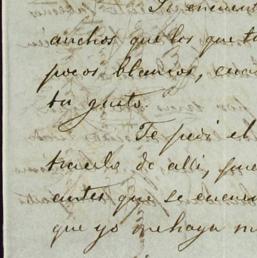 Si encuent
anchos que los que tu
pocos blancos, cuan
tu gusto.
Te pedi el
traerlo de alli, pues
antes que se encuen
que yo me haya m